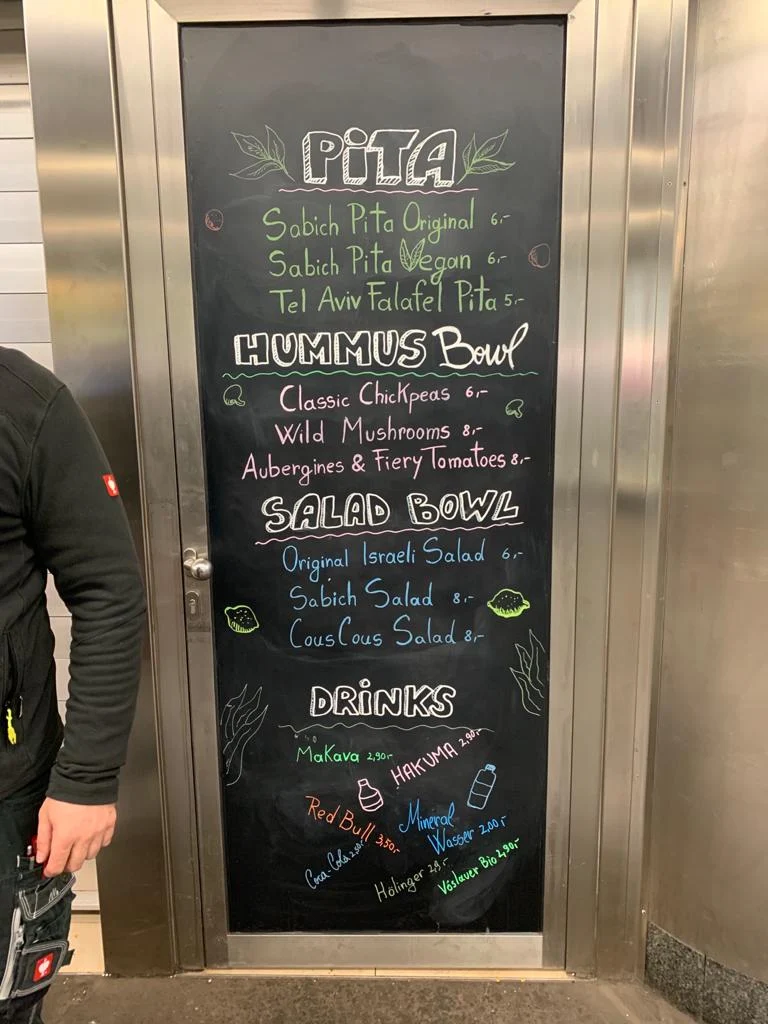 PiTA
Sabich Pita Original 6,-
Sabich Pita Vegan 6,-
Tel Aviv Falafel Pita 5,-
HUMMUS Bowl
Classic Chickpeas 6,-
Wild Mushrooms 8,-
Aubergines & Fiery Tomatoes 8,-
SALAD BOWL
Original Israeli Salad 6,-
Sabich Salad 8,-
CousCous Salad 8,-
DRiNKS
MaKava 2,90,-
HAKUMA 2,90,-
Red Bull 3,50,-
Mineral
Wasser 2,00,-
Coca-Cola
Höllinger 2,9,-
Vöslauer Bio 2,90,-